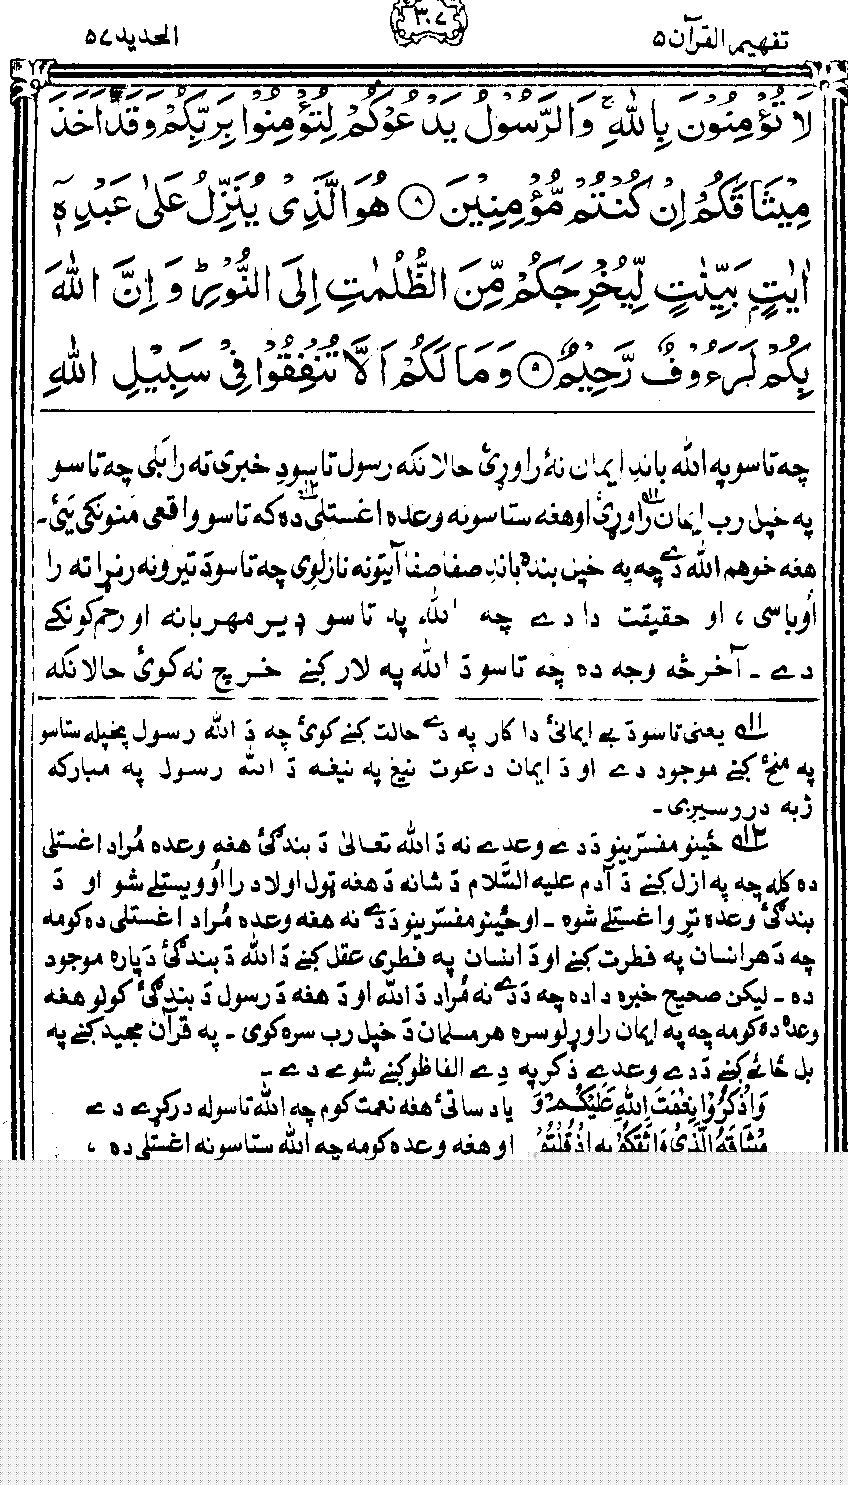 تفهيم القرآن ۵
۳۰۷
الحديد ۵۷
لَا تُؤْمِنُونَ بِاللهِ ۚ وَالرَّسُولُ يَدْعُوكُمْ لِتُؤْمِنُوا بِرَبِّكُمْ وَقَدْ اَخَذَ
مِيْثَاقَكُمْ اِنْ كُنْتُمْ مُّؤْمِنِيْنَ ۸ هُوَ الَّذِىْ يُنَزِّلُ عَلٰى عَبْدِهٖٓ
اٰيٰتٍۭ بَيِّنٰتٍ لِّيُخْرِجَكُمْ مِّنَ الظُّلُمٰتِ اِلَى النُّوْرِ ؕ وَ اِنَّ اللهَ
بِكُمْ لَرَءُوْفٌ رَّحِيْمٌ ۹ وَمَا لَكُمْ اَلَّا تُنْفِقُوْا فِىْ سَبِيْلِ اللهِ
چه تاسو په الله باندِ ايمان نۀ راوړئ حالانكه رسول تاسو دِ خبرى ته رابلى چه تاسو
په خپل رب ايمان راوړئ ۱۱ او هغه ستاسو نه وعده اغستلى ۱۲ ده كه تاسو واقعى منونكى يَئ۔
هغه خو هم الله دے چه په خپل بنده باندِ صفا صفا آيتونه نازلوى چه تاسو دَ تيرو نه رنړا ته را
اُوباسى، او حقيقت دا دے چه الله په تاسو ډير مهربانه او رحم كونكے
دے۔ آخر څه وجه ده چه تاسو دَ الله په لار كښے خرچ نه كوئ حالانكه
۱۱ يعنى تاسو دَ بے ايمانئ دا كار په دے حالت كښے كوئ چه دَ الله رسول پخپله ستاسو
په منځ كښے موجود دے او دَ ايمان دعوت نيغ په نيغه دَ الله رسول په مباركه
ژبه در رسيږى۔
۱۲ ځينو مفسّرينو دَ دے وعدے نه دَ الله تعالىٰ دَ بندگئ هغه وعده مُراد اغستلى
ده كله چه په ازل كښے دَ آدم عليه السّلام دَ شا نه دَ هغه ټول اولاد را اُوويستلے شو او دَ
بندگئ وعده ترو اغستلے شوه۔ او ځينو مفسّرينو دَ دے نه هغه وعده مُراد اغستلى ده كومه
چه دَ هر انسان په فطرت كښے او دَ انسان په فطرى عقل كښے دَ الله دَ بندگئ دَ پاره موجود
ده۔ ليكن صحيح خبره دا ده چه دَ دے نه مُراد دَ الله او دَ هغه دَ رسول دَ بندگئ كولو هغه
وعده ده كومه چه په ايمان راوړلو سره هر مسلمان دَ خپل رب سره كوى۔ په قرآن مجيد كښے په
بل ځائے كښے دَ دے وعدے ذكر په دِے الفاظو كښے شوے دے۔
وَاذْكُرُوْا نِعْمَتَ اللهِ عَلَيْكُمْ وَ ياد ساتئ هغه نعمت كوم چه الله تاسو له دركړے دے
مِيْثَاقَهُ الَّذِىْ وَاثَقَكُمْ بِهٖ اِذْ قُلْتُمْ او هغه وعده كومه چه الله ستاسو نه اغستلى ده ،